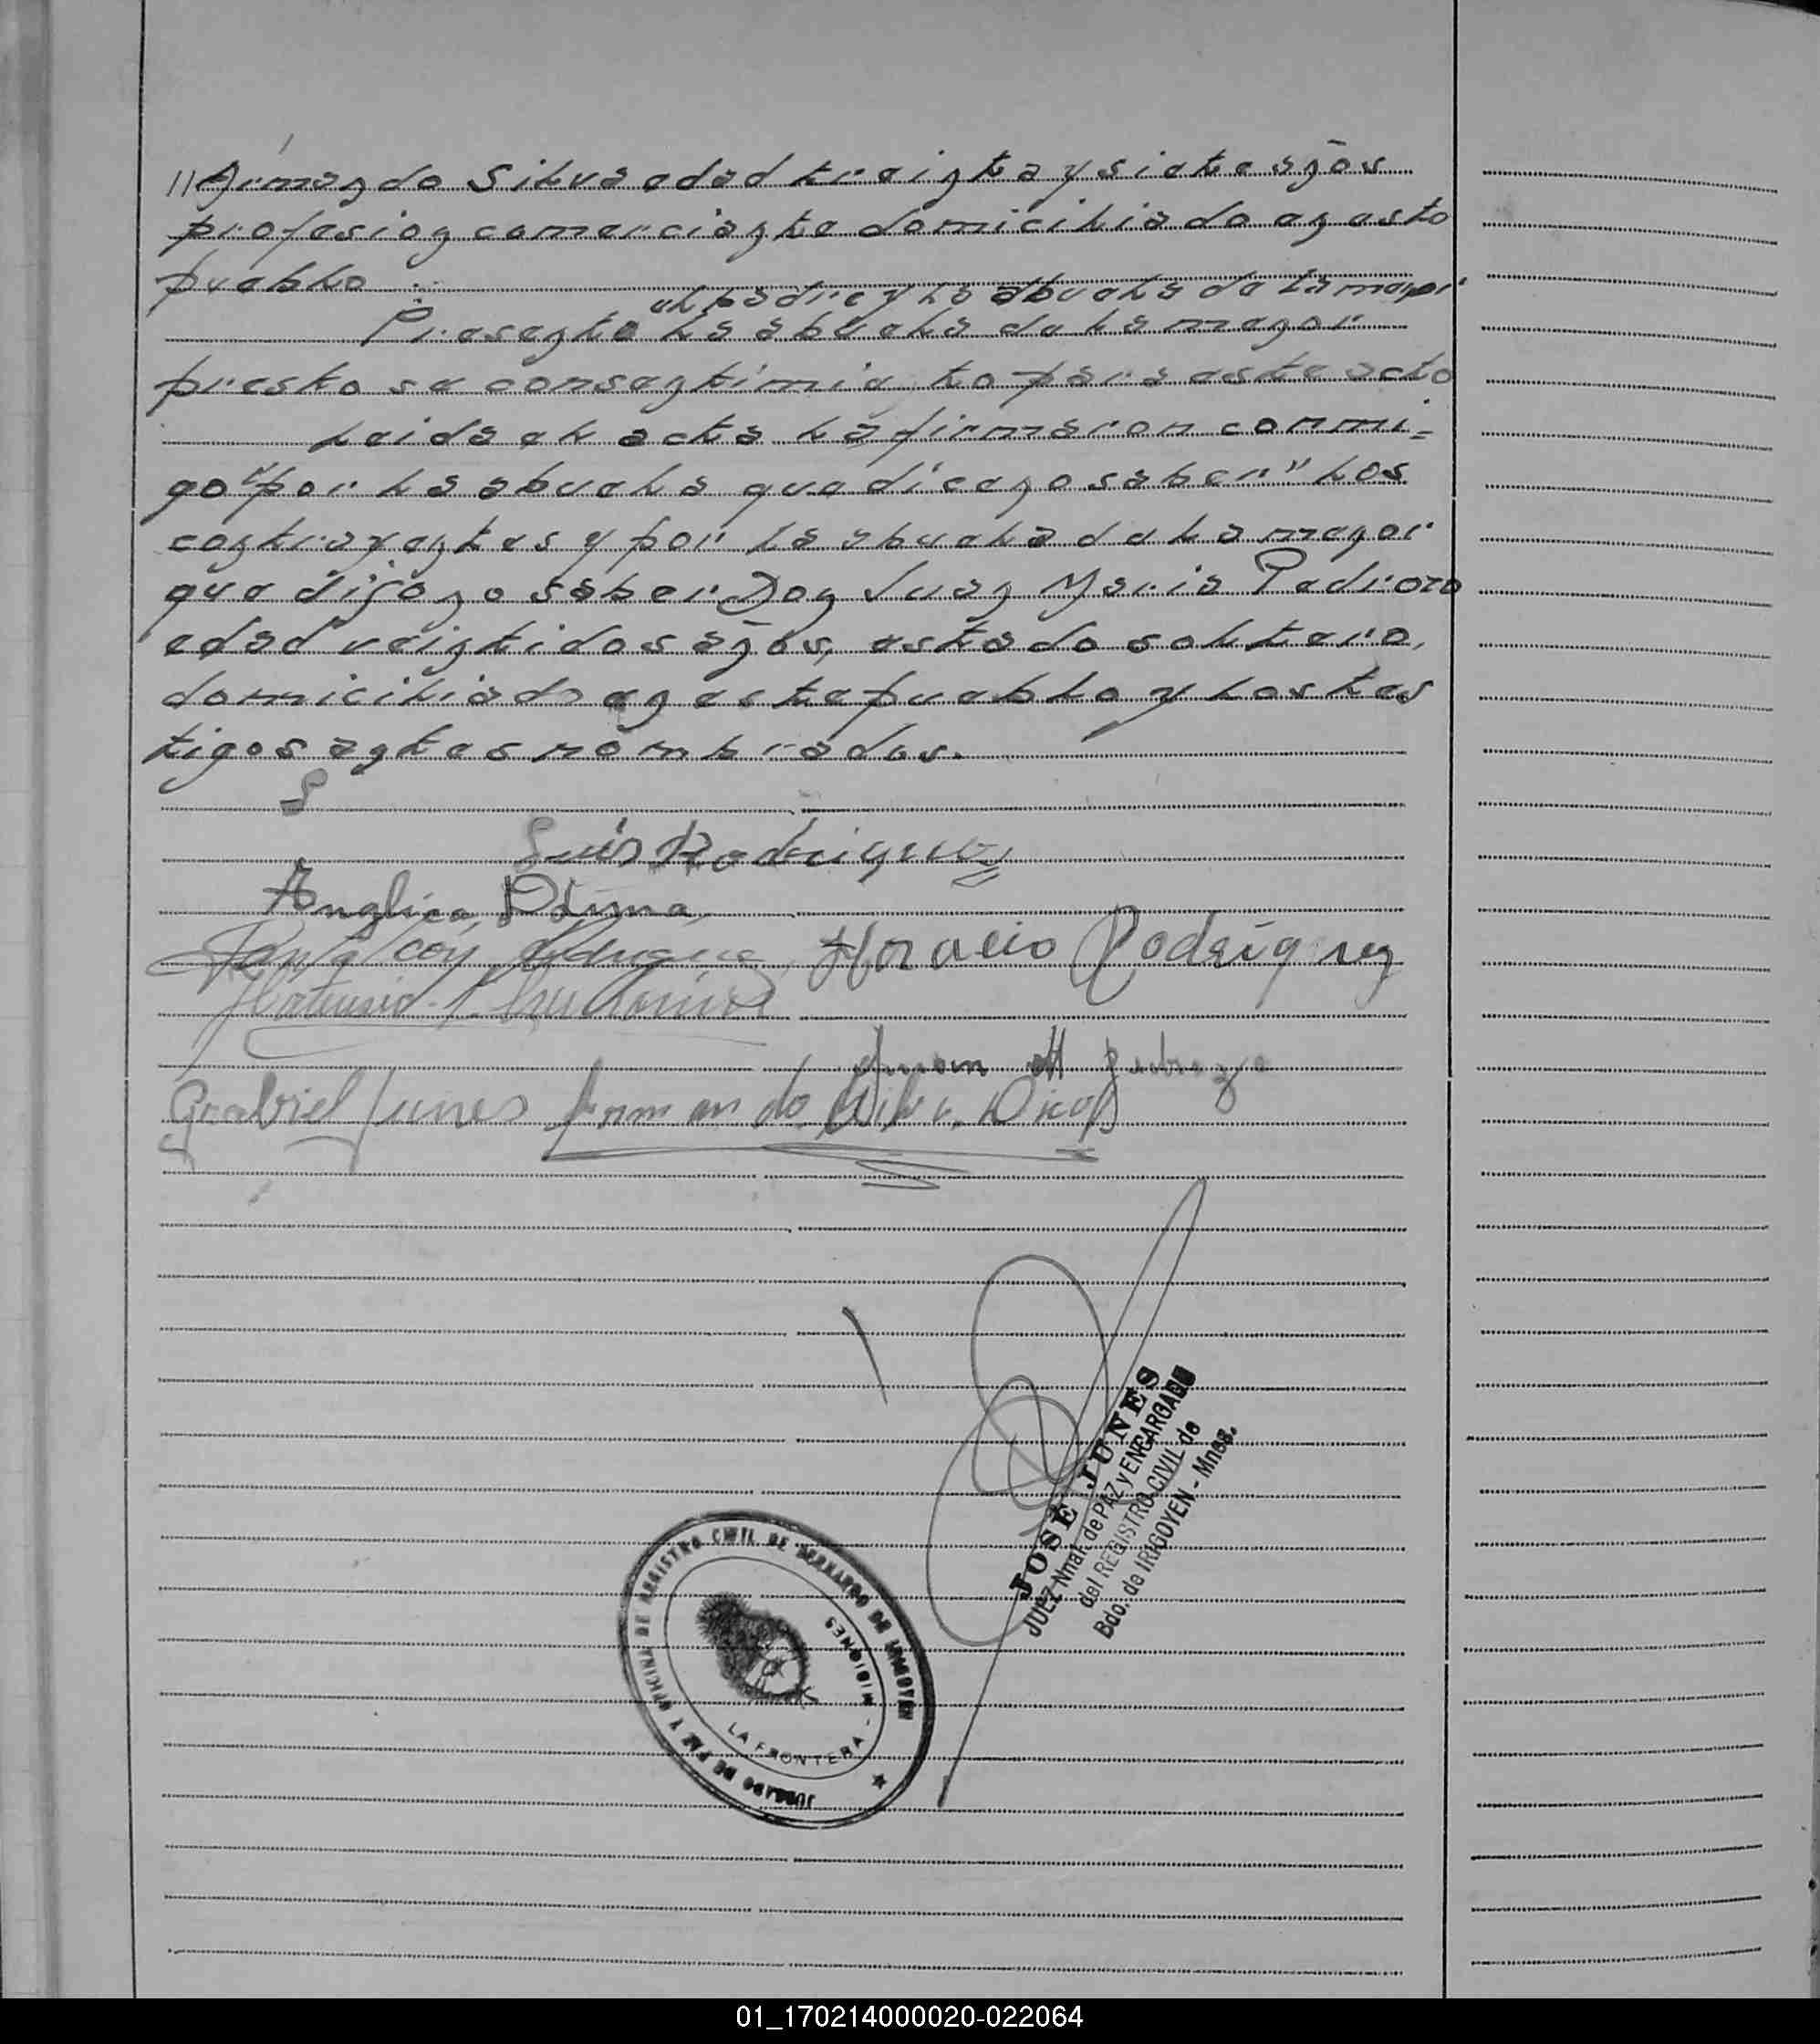 // Armando Silva edad treinta y siete años
profesion comerciante domiciliado en esto
pueblo
el padre y la abuela de la menor
Presente la abuela de la menor
presto se consentimiento para este acto
Leida el acta la firmaron conmi=
go "por la abuela que dice no saber" los
contrayentes y por la abuela de la menor
que dijo no saber Don Juan Maria Pedrozo
edad veintidos años, estado soltero,
domiciliado en este pueblo y los tes
tigos antes nombrados.
S
Luis Rodriguez
Anglica
Horacio Rodriguez
Juan M Pedrozo
Gabriel Junes Armando Silva
JOSÉ JUNES
JUEZ Nnal. de PAZ y ENCARGADO
del REGISTRO CIVIL de
Bdo. de IRIGOYEN - Mnes.
JUZGADO DE PAZ Y OFICINA DE REGISTRO CIVIL DE BERNARDO DE IRIGOYEN
LA FRONTERA - MISIONES
01_170214000020-022064